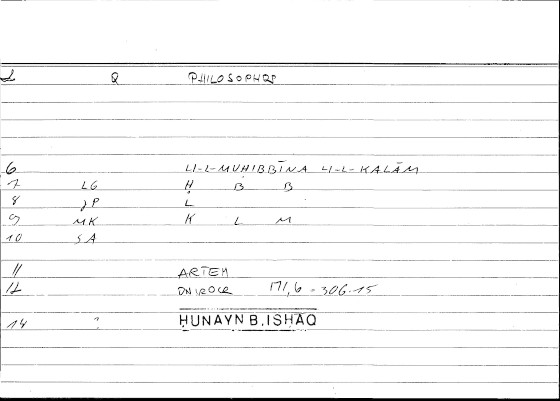 Q PHILOSOPHOS
6 LI-L-MUḤIBBĪNA LI-L-KALĀM
7 LG Ḥ B B
8 JP L
9 MK K L M
10 SA
11 ARTEM
12 ONIROCR 171,6 - 306.15
14 ? ḤUNAYN B. ISḤĀQ